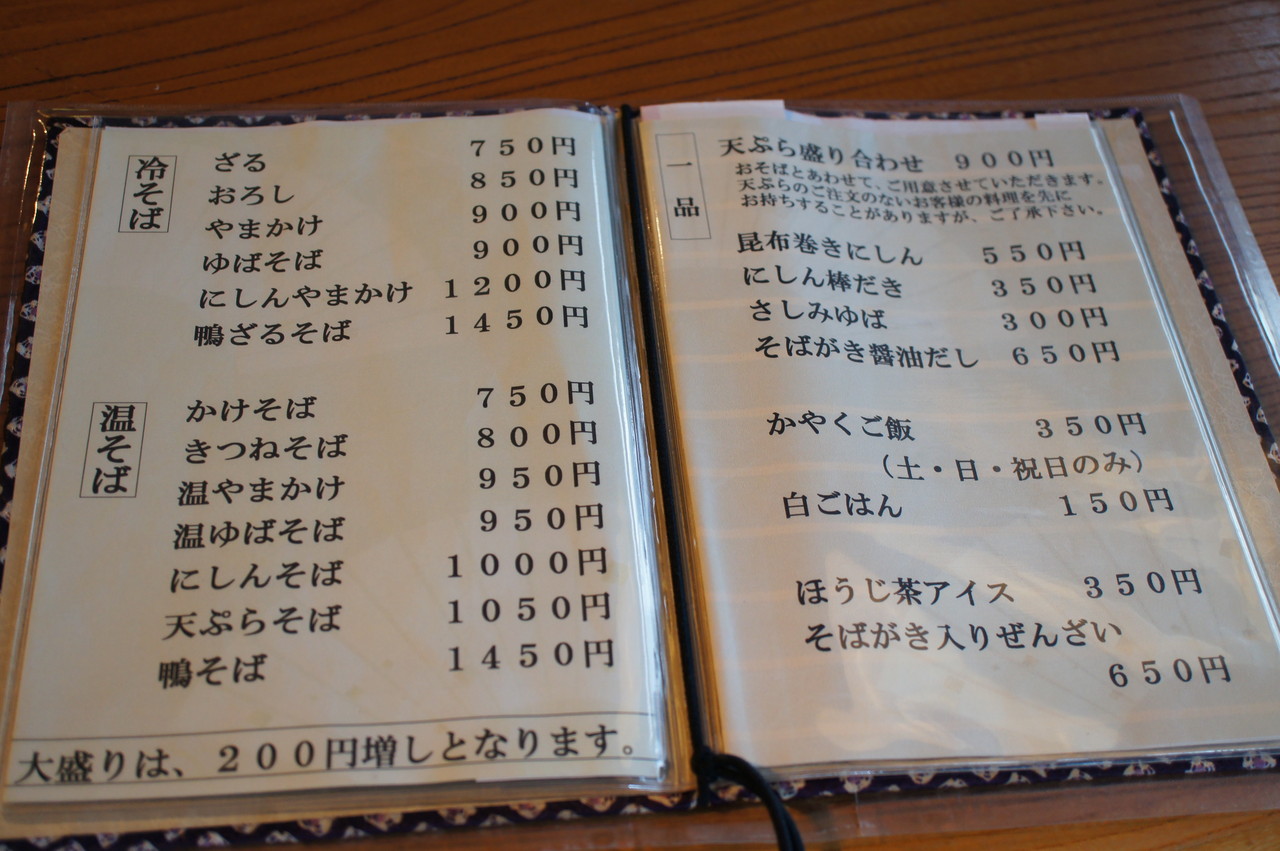 冷そば
ざる ７５０円
おろし ８５０円
やまかけ ９００円
ゆばそば ９００円
にしんやまかけ １２００円
鴨ざるそば １４５０円
温そば
かけそば ７５０円
きつねそば ８００円
温やまかけ ９５０円
温ゆばそば ９５０円
にしんそば １０００円
天ぷらそば １０５０円
鴨そば １４５０円
大盛りは、２００円増しとなります。
一品
天ぷら盛り合わせ ９００円
おそばとあわせて、ご用意させていただきます。
天ぷらのご注文のないお客様の料理を先に
お持ちすることがありますが、ご了承下さい。
昆布巻きにしん ５５０円
にしん棒だき ３５０円
さしみゆば ３００円
そばがき醤油だし ６５０円
かやくご飯 ３５０円
（土・日・祝日のみ）
白ごはん １５０円
ほうじ茶アイス ３５０円
そばがき入りぜんざい
６５０円